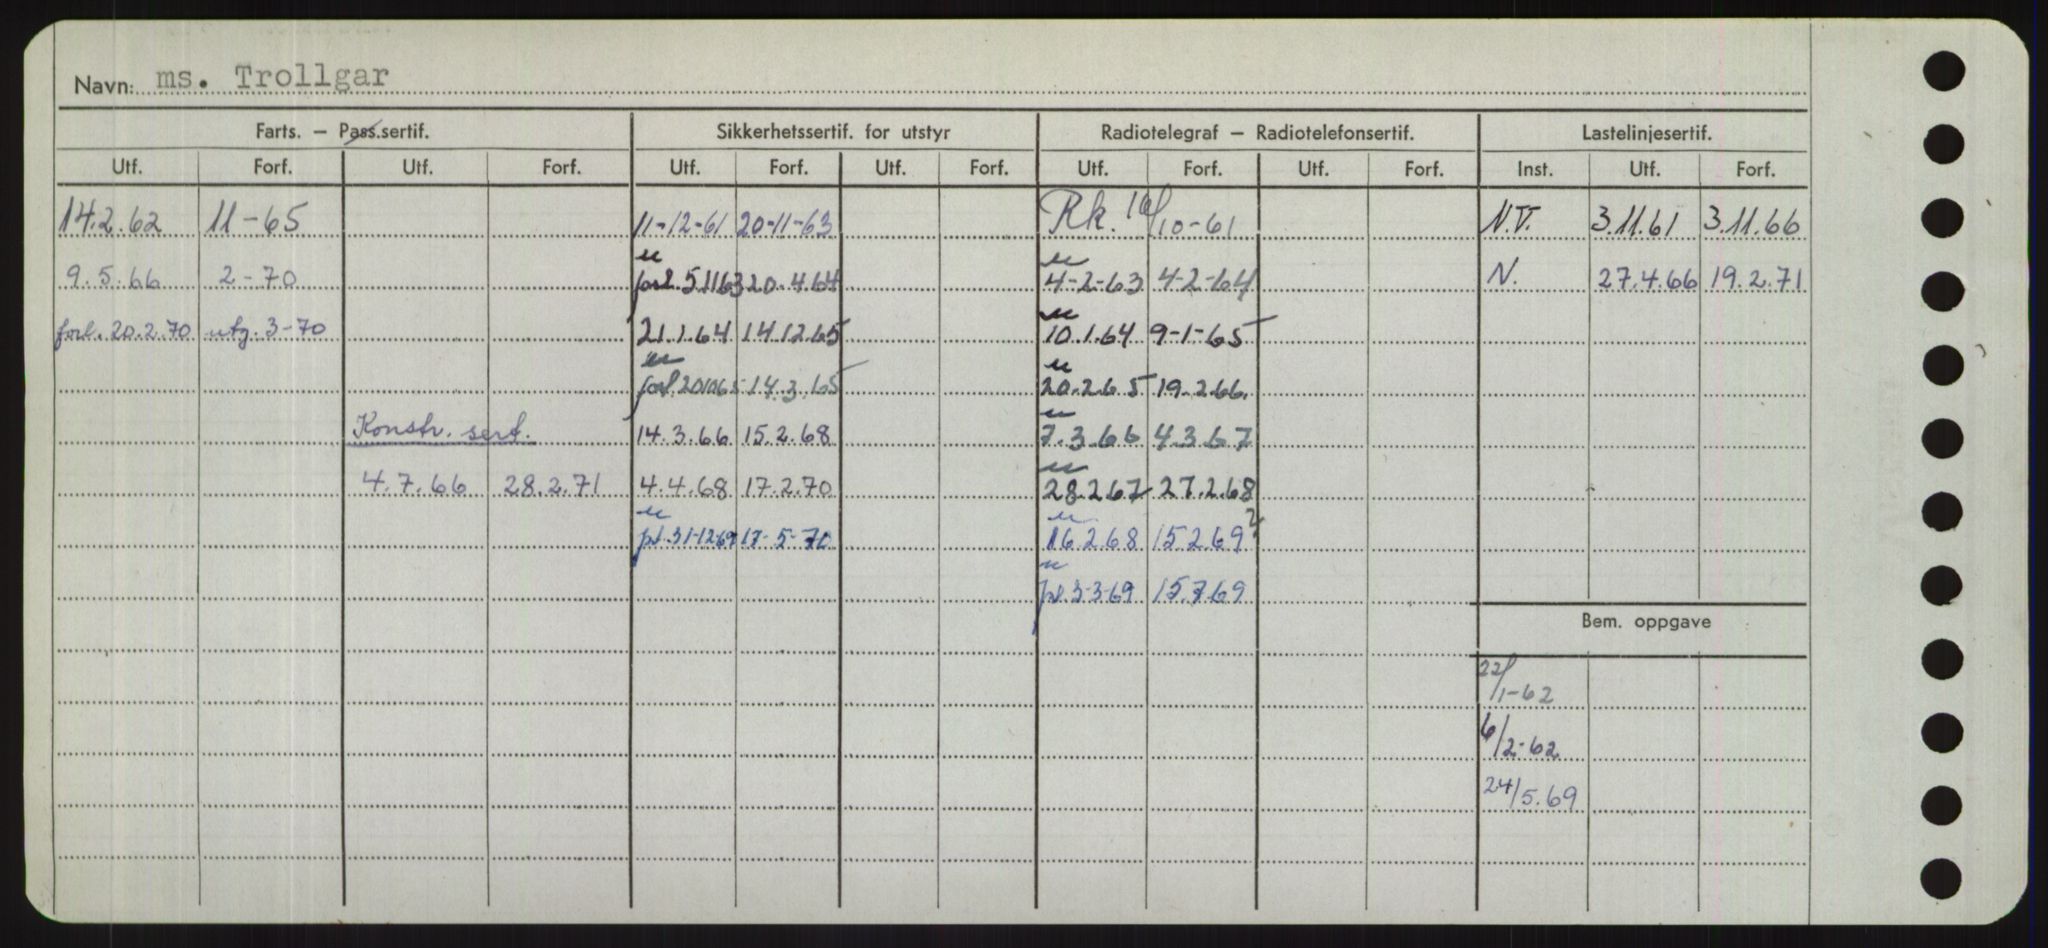 Navn: ms. Trollgar
Farts. – Pass.sertif. Sikkerhetssertif. for utstyr Radiotelegraf – Radiotelefonsertif. Lastelinjesertif.
Utf. Forf. Utf. Forf. Utf. Forf. Utf. Forf. Utf. Forf. Utf. Forf. Inst. Utf. Forf.
14.2.62 11-65 11-12-61 20-11-63 Rk. 16/10-61 N.V. 3.11.61 3.11.66
9.5.66 2-70 forl. 5.1163 20.4.64 4-2-63 4-2-64 N. 27.4.66 19.2.71
forl. 20.2.70 utg. 3-70 21.1.64 14.12.65 10.1.64 9-1-65
forl. 201065 14.3.65 20.2.65 19.2.66.
Konstr. sert. 14.3.66 15.2.68 7.3.66 4.3.67
4.7.66 28.2.71 4.4.68 17.2.70 28.2.67 27.2.68
31-12-69 17-5-70 16.2.68 15.2.69
3-3-69 15.7.69
Bem. oppgave
22/1-62
6/2-62
24/5.69